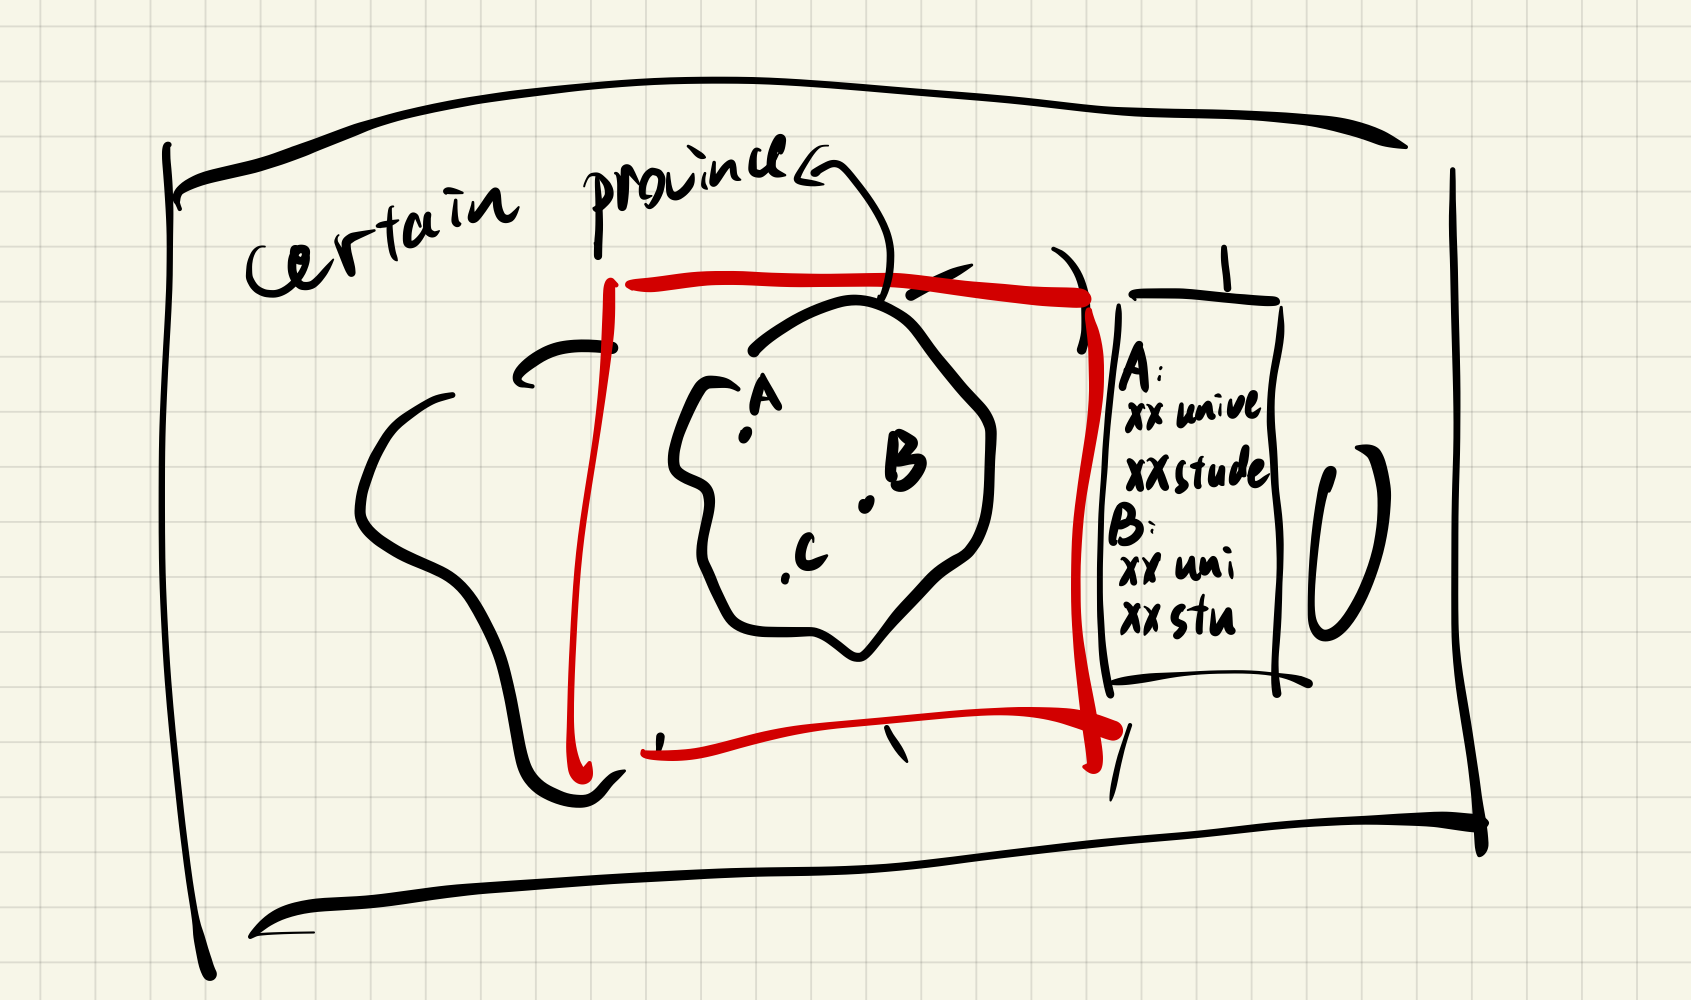 certain province
A
B
C
A:
xx unive
xx stude
B:
xx uni
xx stu